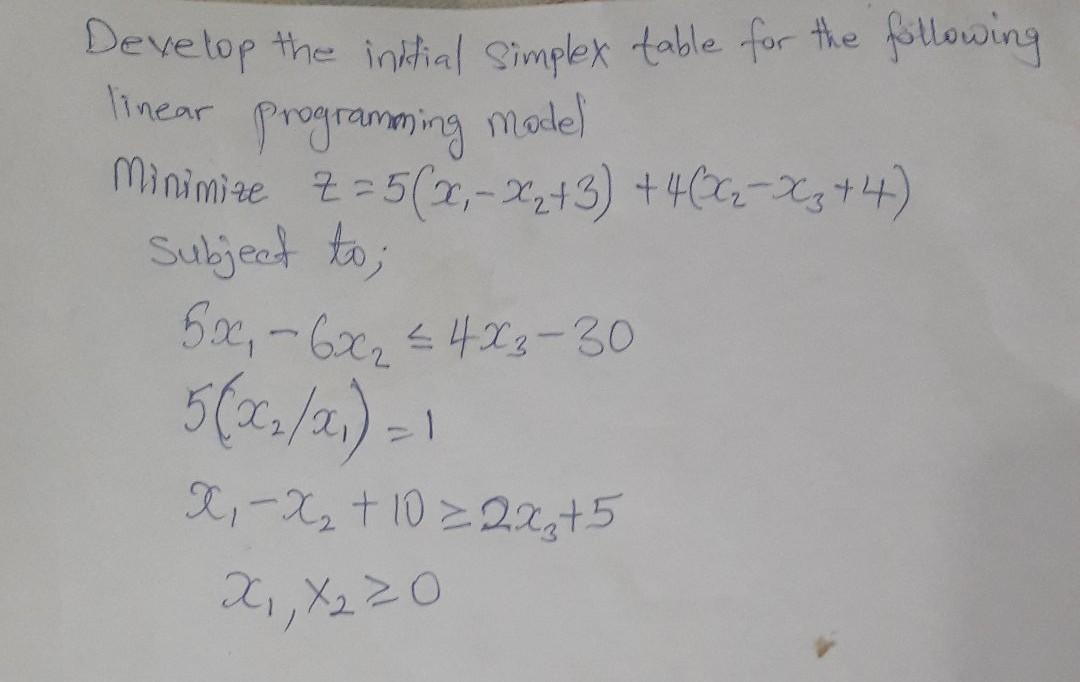 Develop the initial simplex table for the following
linear programming model
Minimize z = 5(x₁ - x₂ + 3) + 4(x₂ - x₃ + 4)
Subject to;
5x₁ - 6x₂ ≤ 4x₃ - 30
5(x₂/x₁) = 1
x₁ - x₂ + 10 ≥ 2x₃ + 5
x₁, x₂ ≥ 0